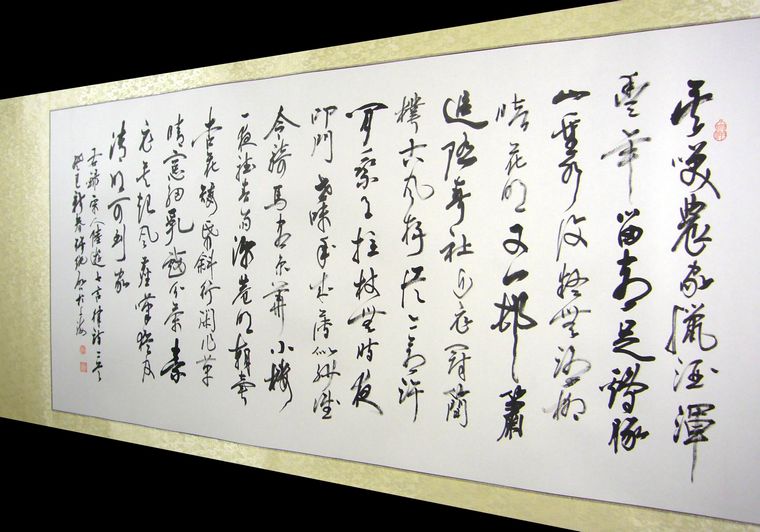 莫笑農家臘酒渾
豐年留客足雞豚
山重水復疑無路柳
暗花明又一邨簫
追随春社近衣冠簡
樸古風存從今若許
閒乘月拄杖無時夜
叩門世味年來薄似紗誰
令騎馬客京華小樓
一夜聽春雨深巷明朝賣
杏花矮紙斜行閑作草
晴窗細乳戲分茶素
衣莫起風塵嘆猶及
清明可到家
宋人陸遊七言律詩二首
癸巳新春於上海